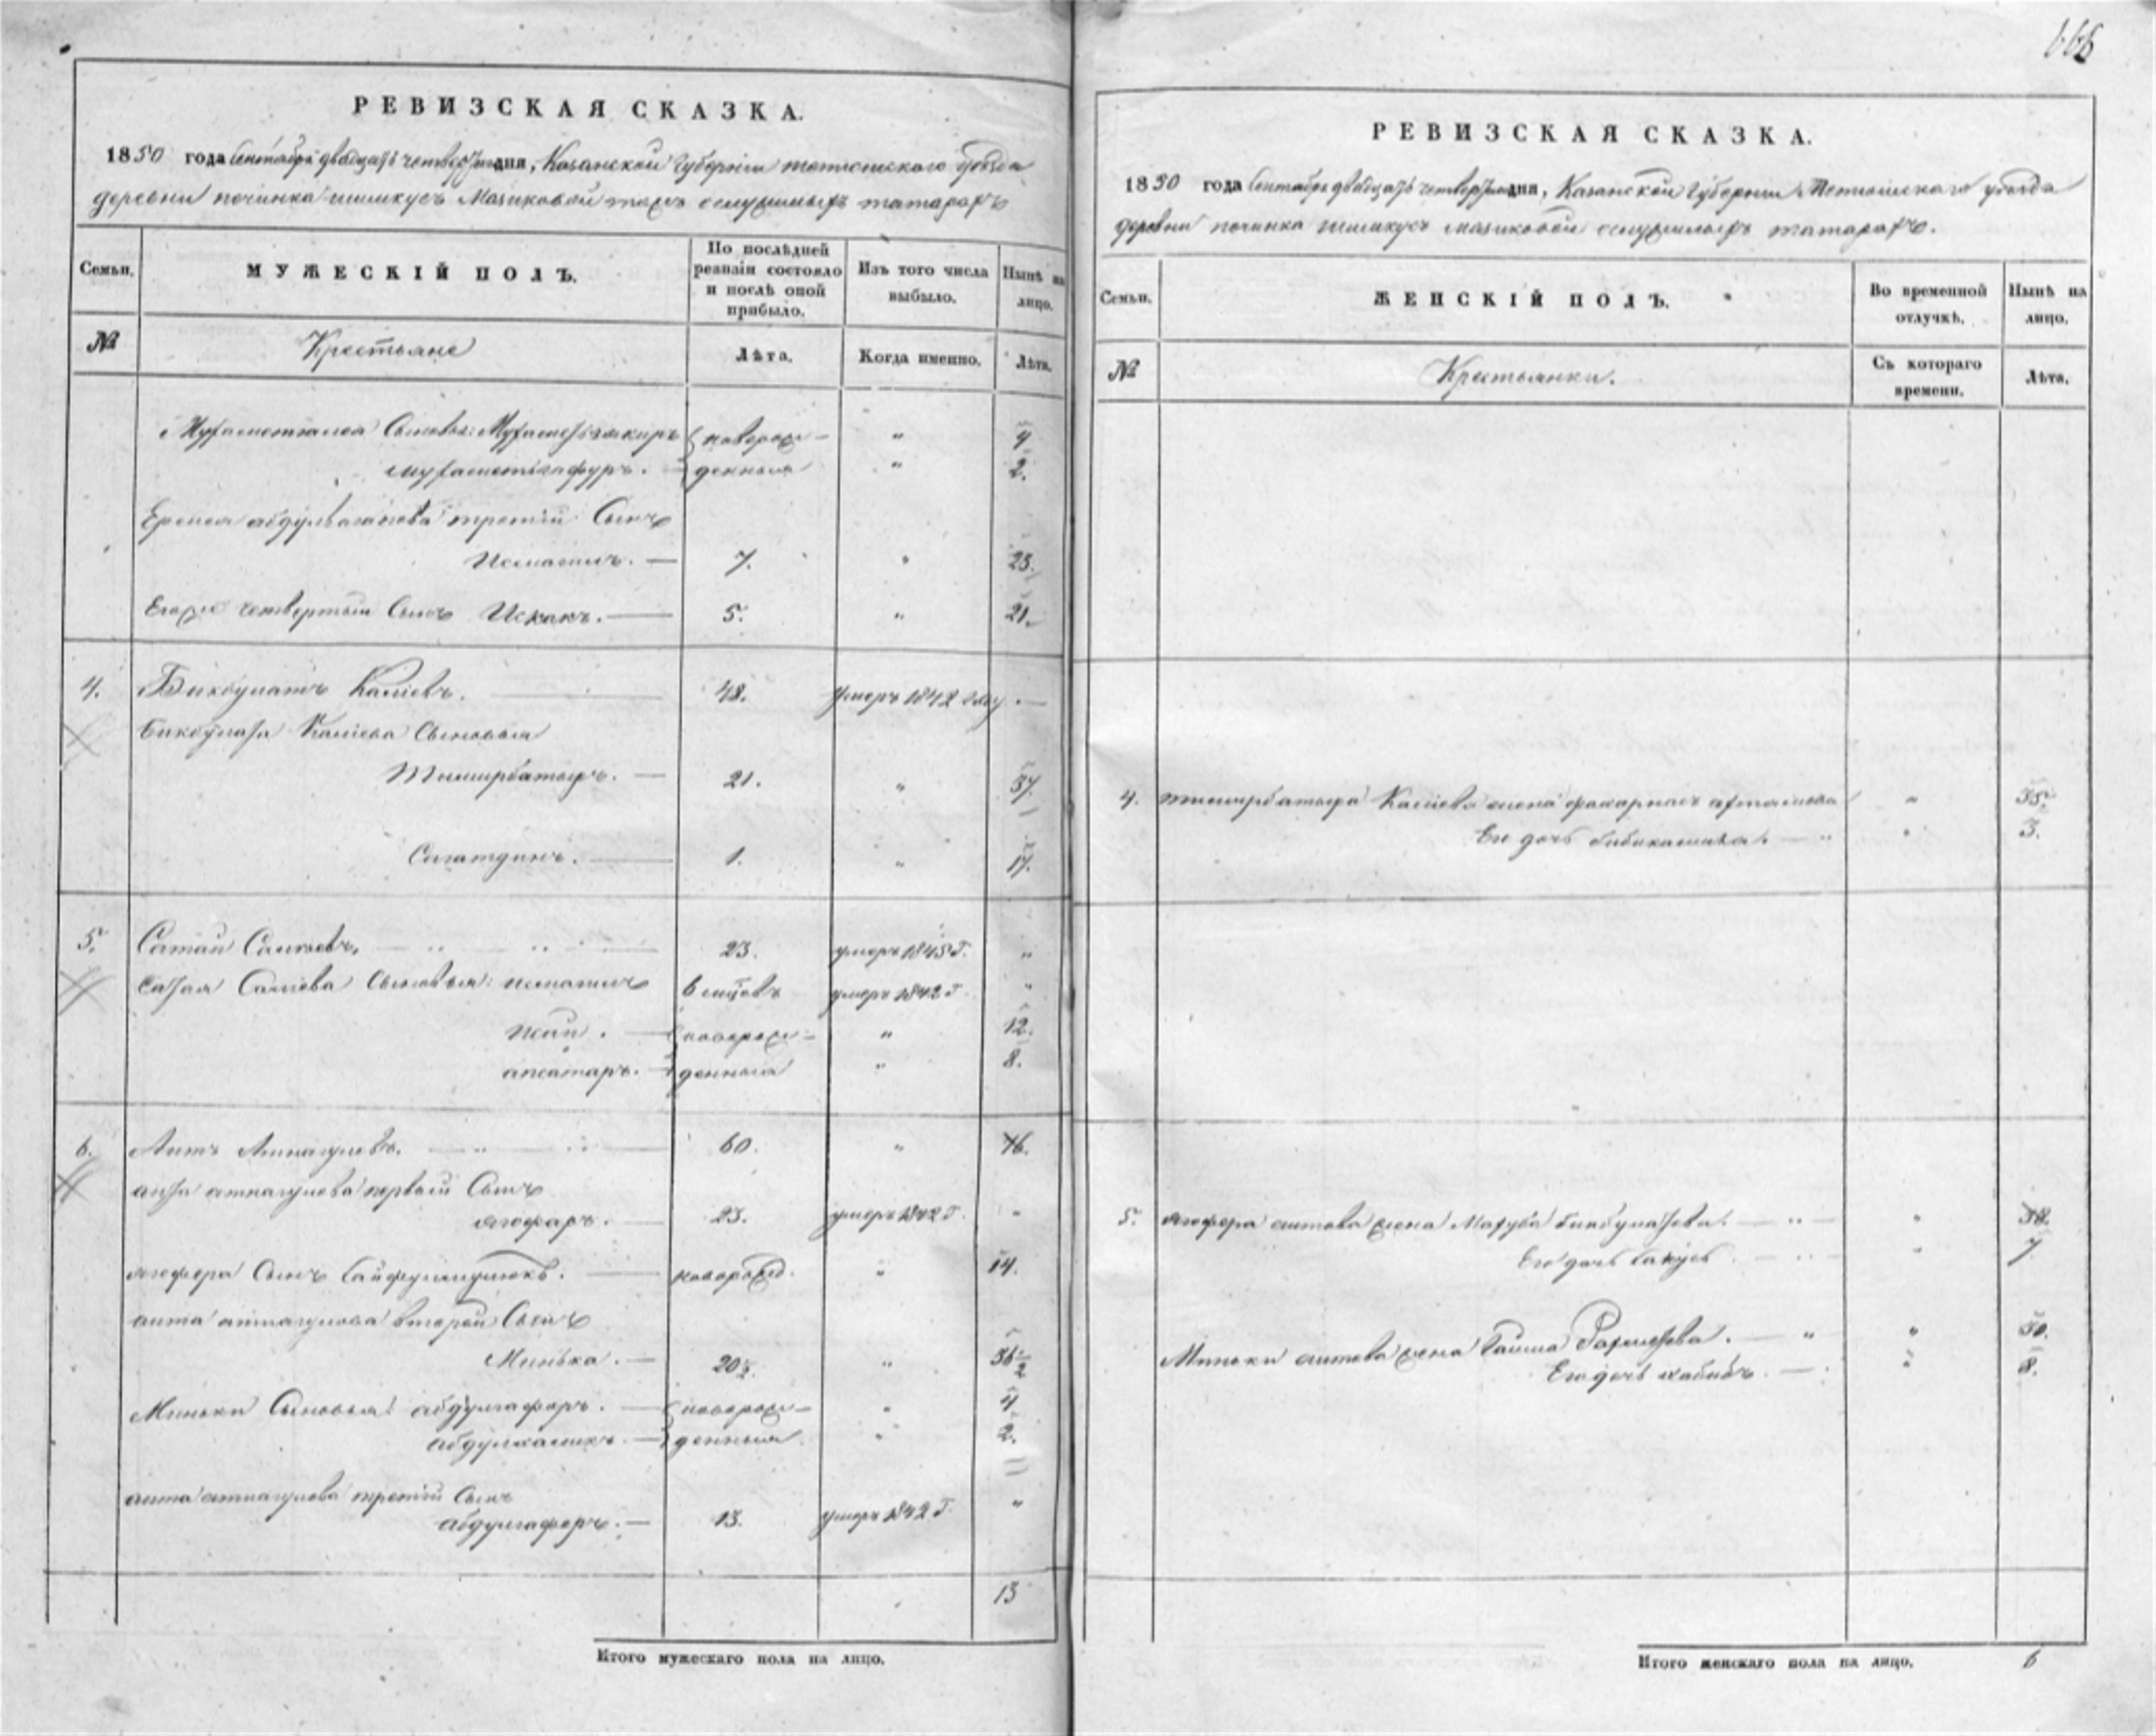 666
РЕВИЗСКАЯ СКАЗКА.
1850 года Сентября двадцать четвертого дня, Казанской Губернии Тетюшского уезда
деревни починка Шимкусъ Мазиковой тожъ служилыхъ татаръ
Семьи.
МУЖЕСКІЙ ПОЛЪ.
По послѣдней ревизіи состояло и послѣ оной прибыло.
Изъ того числа выбыло.
Нынѣ на лицо.
№
Крестьяне
Лѣта.
Когда именно.
Лѣта.
Мухаметзакиръ новорож- " 4
Мухаметгафуръ. денныя " 2.
третій Сынъ
Исмагилъ. — 7. " 23.
Егоже четвертый Сынъ Искакъ. — 5. " 21.
4. Бикбулатъ Каліевъ. 48. умеръ 1842 году. —
Бикбулата Каліева Сыновья
Тимирбатыръ. — 21. " 37.
Сагатдинъ. — 1. " 17.
5. Сатай Саліевъ. 23. умеръ 1845 г. "
Сатая Саліева Сыновья: Исмагилъ 6 мцовъ умеръ 1842 г. "
новорож- " 12.
апсатаръ. — денныя " 8.
6. Аитъ Атнагуловъ. 60. " 76.
аита атнагулова первый Сынъ
ягофаръ. — 23. умеръ 1842 г. "
ягофера Сынъ новорожд. " 14.
аита атнагулова второй Сынъ
Минька. — 20½. " 36½
Миньки Сыновья: абдулгафаръ. — новорож- " 4
денныя " 2.
аита атнагулова третій Сынъ
абдулгаферъ. — 13. умеръ 1842 г. "
13
Итого мужескаго пола на лицо.
РЕВИЗСКАЯ СКАЗКА.
1850 года Сентября двадцать четвертого дня, Казанской Губернии Тетюшскаго уезда
деревни починка Шимкусъ Мазиковой служилыхъ татаръ.
Семьи.
ЖЕНСКІЙ ПОЛЪ.
Во временной отлучкѣ.
Нынѣ на лицо.
№
Крестьянки.
Съ котораго времени.
Лѣта.
4. Тимирбатыра Каліева жена " 35.
Его дочь " 3.
5. ягофера аитова жена Махуба Бикбулатова. " 38.
Его дочь " 7
Миньки аитова жена Гайша Рахметова. — " " 30.
Его дочь хабиба. — " 8.
Итого женскаго пола на лицо. 6